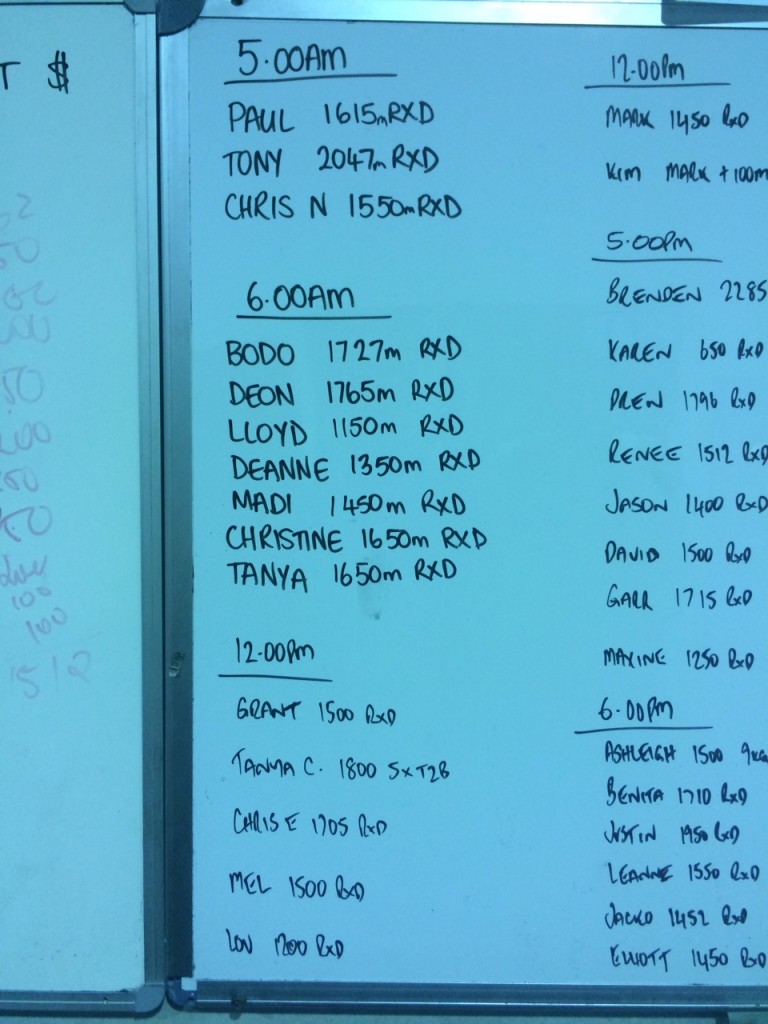 T $
50
00
50
200
50
50
100
100
512
5.00AM
PAUL 1615m RXD
TONY 2047m RXD
CHRIS N 1550m RXD
6.00AM
BODO 1727m RXD
DEON 1765m RXD
LLOYD 1150m RXD
DEANNE 1350m RXD
MADI 1450m RXD
CHRISTINE 1650m RXD
TANYA 1650m RXD
12.00Pm
GRANT 1500 RxD
TANYA C. 1800 5xT2B
CHRIS E 1705 RxD
MEL 1500 RxD
LOU 1200 RxD
12.00Pm
MARK 1450 RxD
KIM MARK + 100m
5.00Pm
BRENDEN 2285
KAREN 650 RxD
DREN 1796 RxD
RENEE 1512 RxD
JASON 1400 RxD
DAVID 1500 RxD
GARR 1715 RxD
MAXINE 1250 RxD
6.00Pm
ASHLEIGH 1500
BENITA 1710 RxD
JUSTIN 1950 RxD
LEANNE 1550 RxD
JACKO 1452 RxD
ELLIOTT 1450 RxD